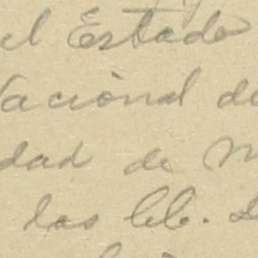 el Estado
Nacional de
dad de M
las bb.